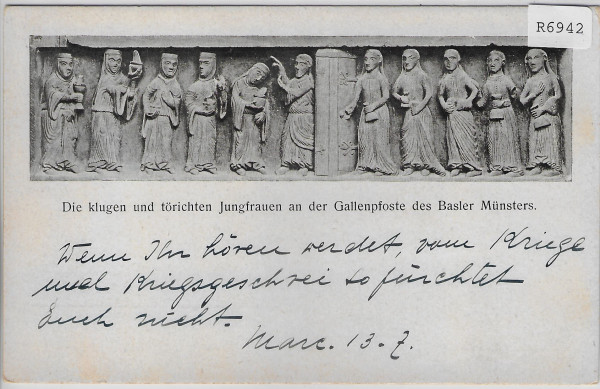 R6942
Die klugen und törichten Jungfrauen an der Gallenpfoste des Basler Münsters.
Wenn Ihr hören werdet, vom Kriege
und Kriegsgeschrei so fürchtet
Euch nicht.
Marc. 13-7.